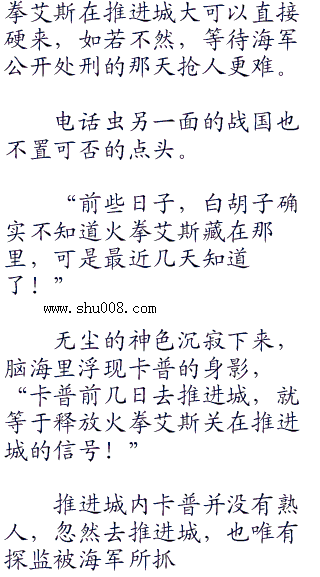 拳艾斯在推进城大可以直接
硬来，如若不然，等待海军
公开处刑的那天抢人更难。
电话虫另一面的战国也
不置可否的点头。
“前些日子，白胡子确
实不知道火拳艾斯藏在那
里，可是最近几天知道
了！”
www.shu008.com
无尘的神色沉寂下来，
脑海里浮现卡普的身影，
“卡普前几日去推进城，就
等于释放火拳艾斯关在推进
城的信号！”
推进城内卡普并没有熟
人，忽然去推进城，也唯有
探监被海军所抓